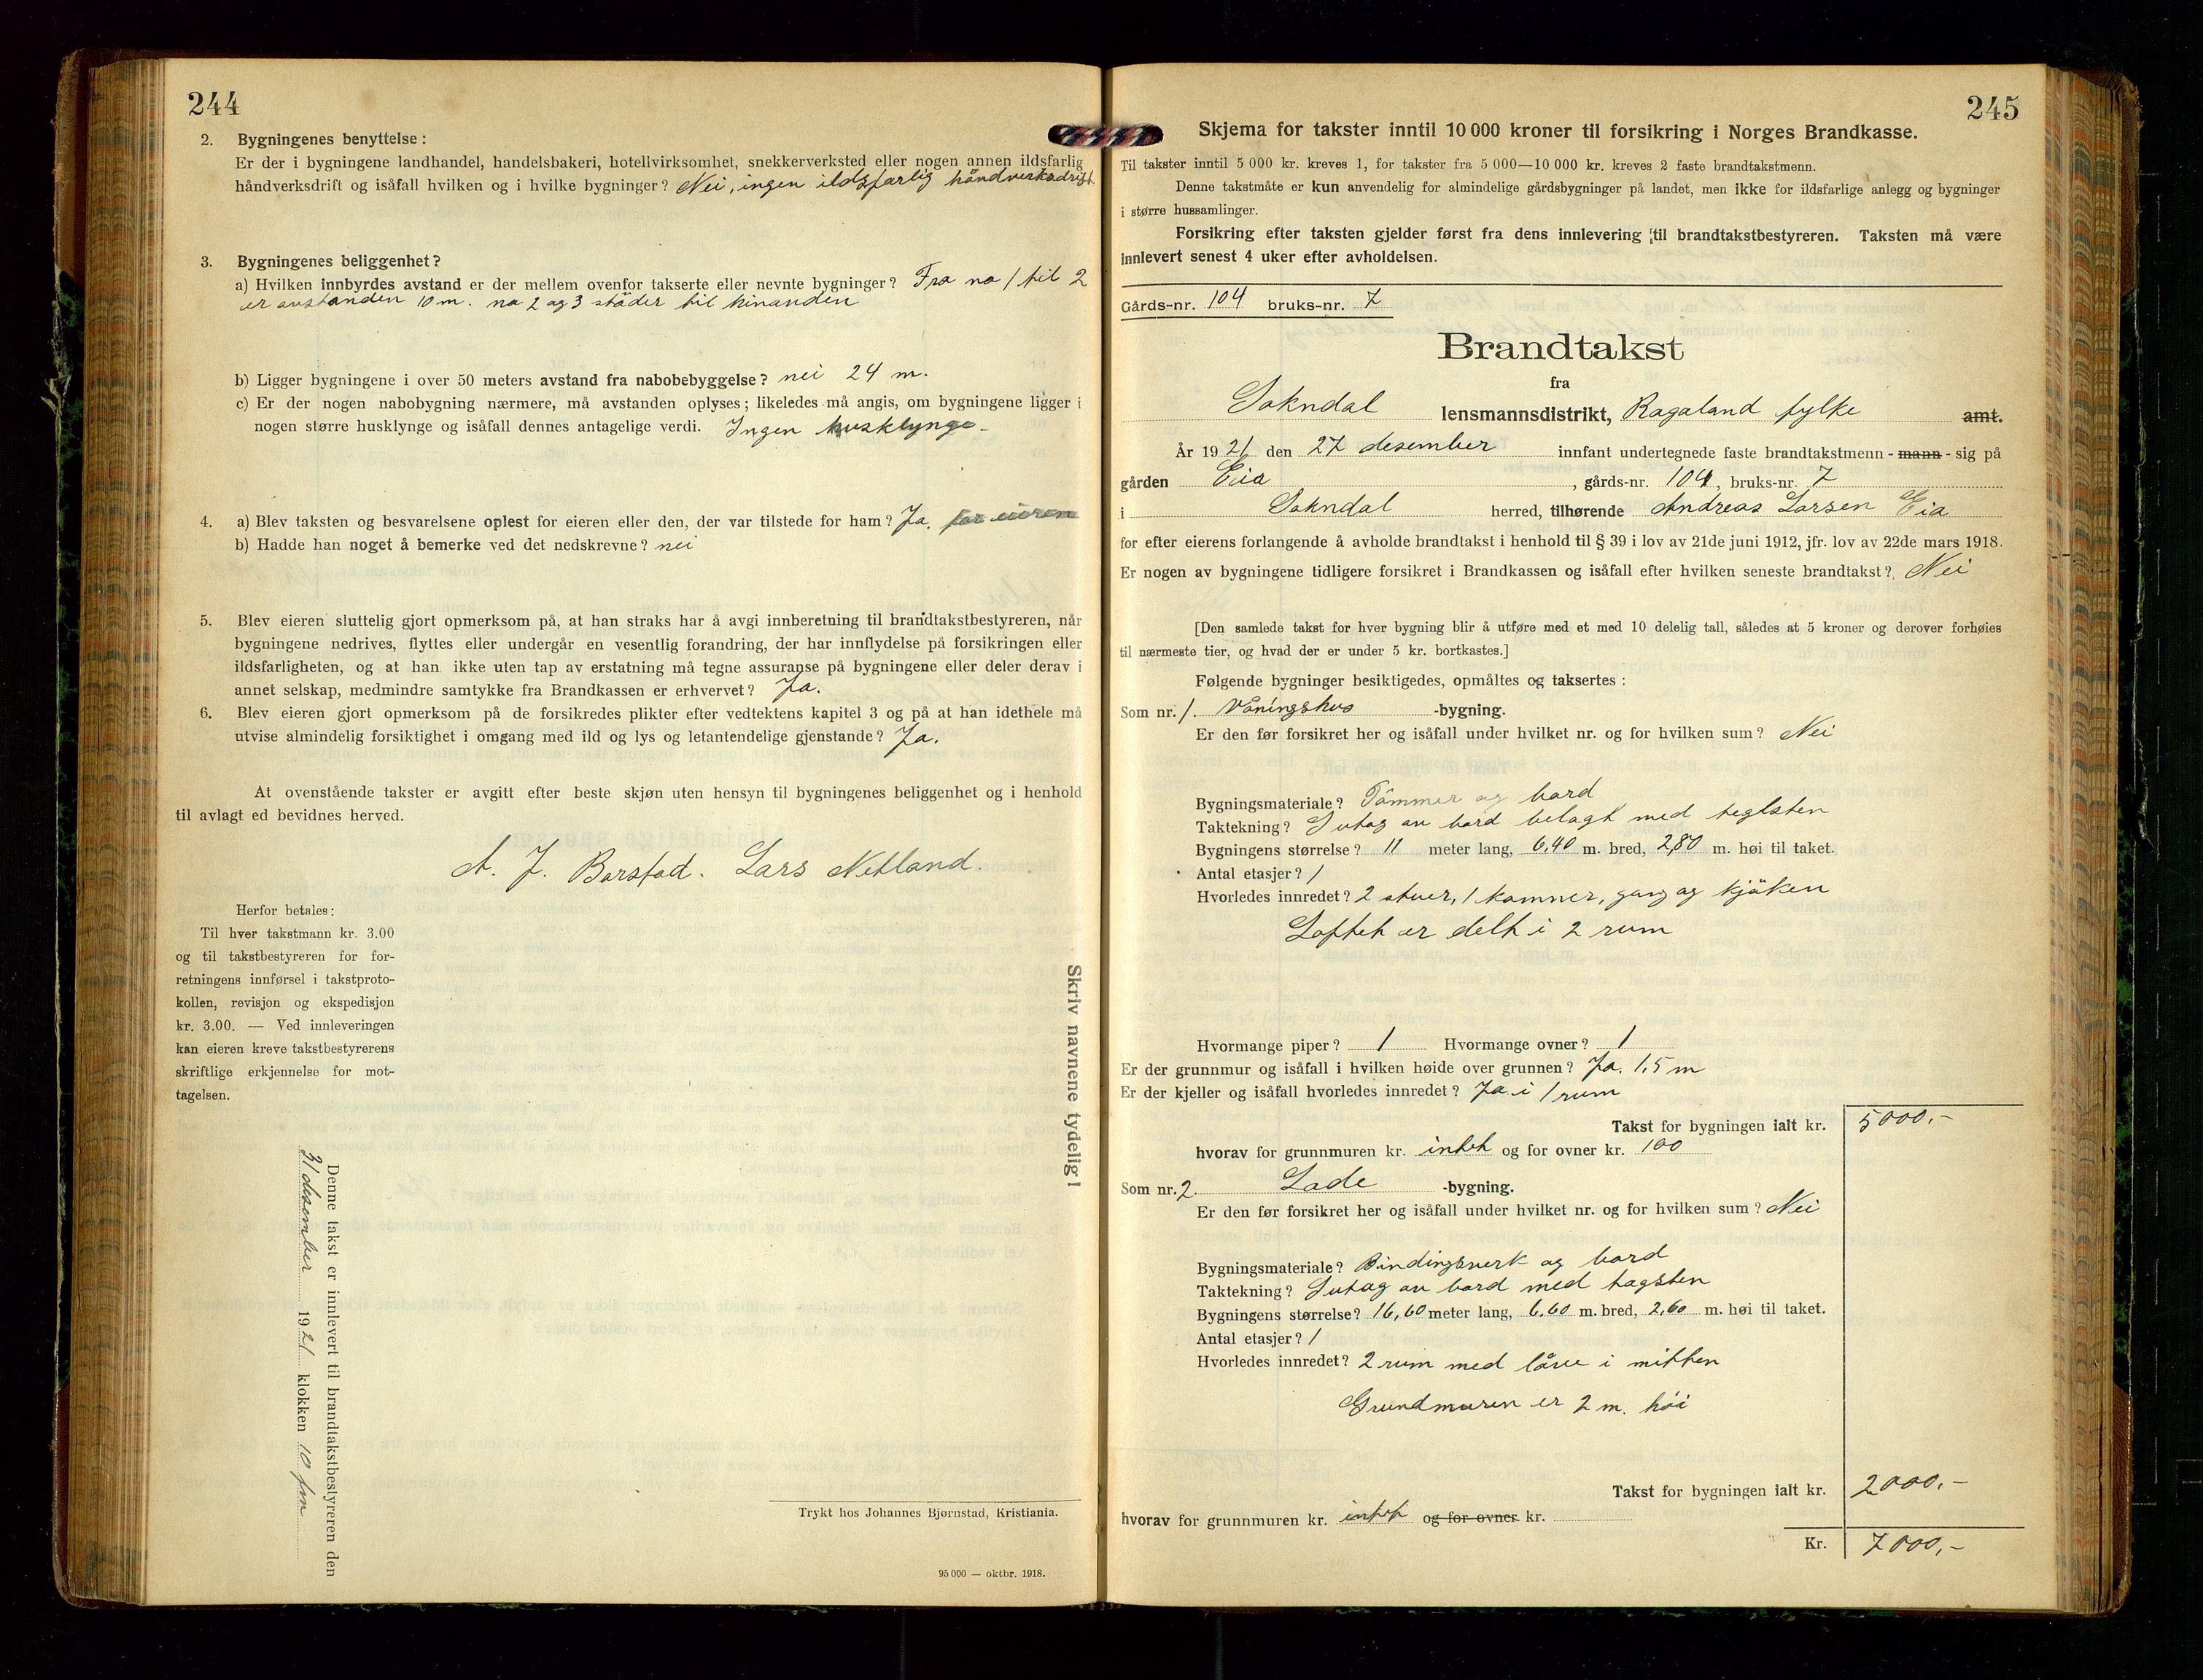 244
2. Bygningenes benyttelse:
Er der i bygningene landhandel, handelsbakeri, hotellvirksomhet, snekkerverksted eller nogen annen ildsfarlig
håndverksdrift og isåfall hvilken og i hvilke bygninger? Nei, ingen ildsfarlig håndverksdrift
3. Bygningenes beliggenhet?
a) Hvilken innbyrdes avstand er der mellem ovenfor takserte eller nevnte bygninger? Fra no 1 til 2
er avstanden 10 m. no 2 og 3 støder til hinanden
b) Ligger bygningene i over 50 meters avstand fra nabobebyggelse? nei 24 m.
c) Er der nogen nabobygning nærmere, må avstanden oplyses; likeledes må angis, om bygningene ligger i
nogen større husklynge og isåfall dennes antagelige verdi. Ingen husklynge
4. a) Blev taksten og besvarelsene oplest for eieren eller den, der var tilstede for ham? Ja. for eieren
b) Hadde han noget å bemerke ved det nedskrevne? nei
5. Blev eieren sluttelig gjort opmerksom på, at han straks har å avgi innberetning til brandtakstbestyreren, når
bygningene nedrives, flyttes eller undergår en vesentlig forandring, der har innflydelse på forsikringen eller
ildsfarligheten, og at han ikke uten tap av erstatning må tegne assuranse på bygningene eller deler derav i
annet selskap, medmindre samtykke fra Brandkassen er erhvervet? Ja.
6. Blev eieren gjort opmerksom på de forsikredes plikter efter vedtektens kapitel 3 og på at han idethele må
utvise almindelig forsiktighet i omgang med ild og lys og letantendelige gjenstande? Ja.
At ovenstående takster er avgitt efter beste skjøn uten hensyn til bygningenes beliggenhet og i henhold
til avlagt ed bevidnes herved.
A. J. Barstad. Lars Netland.
Herfor betales:
Til hver takstmann kr. 3.00
og til takstbestyreren for for-
retningens innførsel i takstproto-
kollen, revisjon og ekspedisjon
kr. 3.00. — Ved innleveringen
kan eieren kreve takstbestyrerens
skriftlige erkjennelse for mot-
tagelsen.
Skriv navnene tydelig!
Denne takst er innlevert til brandtakstbestyreren den
31 desember 1921 klokken 10 fm
Trykt hos Johannes Bjørnstad, Kristiania.
95 000 — oktbr. 1918.
245
Skjema for takster inntil 10 000 kroner til forsikring i Norges Brandkasse.
Til takster inntil 5 000 kr. kreves 1, for takster fra 5 000—10 000 kr. kreves 2 faste brandtakstmenn.
Denne takstmåte er kun anvendelig for almindelige gårdsbygninger på landet, men ikke for ildsfarlige anlegg og bygninger
i større hussamlinger.
Forsikring efter taksten gjelder først fra dens innlevering til brandtakstbestyreren. Taksten må være
innlevert senest 4 uker efter avholdelsen.
Gårds-nr. 104 bruks-nr. 7
Brandtakst
fra
Sokndal lensmannsdistrikt, Rogaland fylke amt.
År 1921 den 27 desember innfant undertegnede faste brandtakstmenn - mann - sig på
gården Eia, gårds-nr. 104, bruks-nr. 7
i Sokndal herred, tilhørende Andreas Larsen Eia
for efter eierens forlangende å avholde brandtakst i henhold til § 39 i lov av 21de juni 1912, jfr. lov av 22de mars 1918.
Er nogen av bygningene tidligere forsikret i Brandkassen og isåfall efter hvilken seneste brandtakst? Nei
[Den samlede takst for hver bygning blir å utføre med et med 10 delelig tall, således at 5 kroner og derover forhøies
til nærmeste tier, og hvad der er under 5 kr. bortkastes.]
Følgende bygninger besiktigedes, opmåltes og taksertes:
Som nr. 1. Våningshus -bygning.
Er den før forsikret her og isåfall under hvilket nr. og for hvilken sum? Nei
Bygningsmateriale? Tömmer og bord
Taktekning? Sutag av bord belagt med teglsten
Bygningens størrelse? 11 meter lang, 6,40 m. bred, 2,80 m. høi til taket.
Antal etasjer? 1
Hvorledes innredet? 2 stuer, 1 kammer, gang og kjöken
Loftet er delt i 2 rum
Hvormange piper? 1 Hvormange ovner? 1
Er der grunnmur og isåfall i hvilken høide over grunnen? Ja. 1,5 m
Er der kjeller og isåfall hvorledes innredet? Ja i 1 rum
Takst for bygningen ialt kr. 5000,-
hvorav for grunnmuren kr. intet og for ovner kr. 100
Som nr. 2. Lade -bygning.
Er den før forsikret her og isåfall under hvilket nr. og for hvilken sum? Nei
Bygningsmateriale? Bindingsverk og bord
Taktekning? Sutag av bord med tagsten
Bygningens størrelse? 16,60 meter lang, 6,60 m. bred, 2,60 m. høi til taket.
Antal etasjer? 1
Hvorledes innredet? 2 rum med låve i mitten
Grundmuren er 2 m. høi
Takst for bygningen ialt kr. 2000,-
hvorav for grunnmuren kr. intet og for ovner kr.
Kr. 7000,-